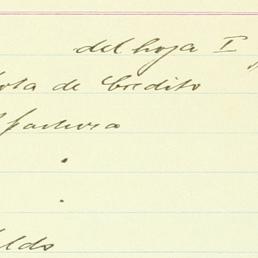 del hoja I
ota de Credito
factura
"
"
ldo